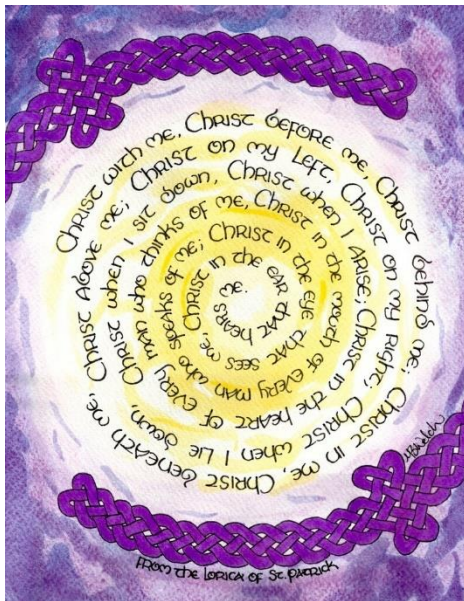 Christ with me, Christ before me, Christ behind me; Christ in me, Christ beneath me, Christ above me; Christ on my left, Christ on my right; Christ when I lie down, Christ when I sit down, Christ when I arise; Christ in the heart of every man who thinks of me, Christ in the mouth of every man who speaks of me; Christ in the eye that sees me, Christ in the ear that hears me.
From the Lorica of St. Patrick